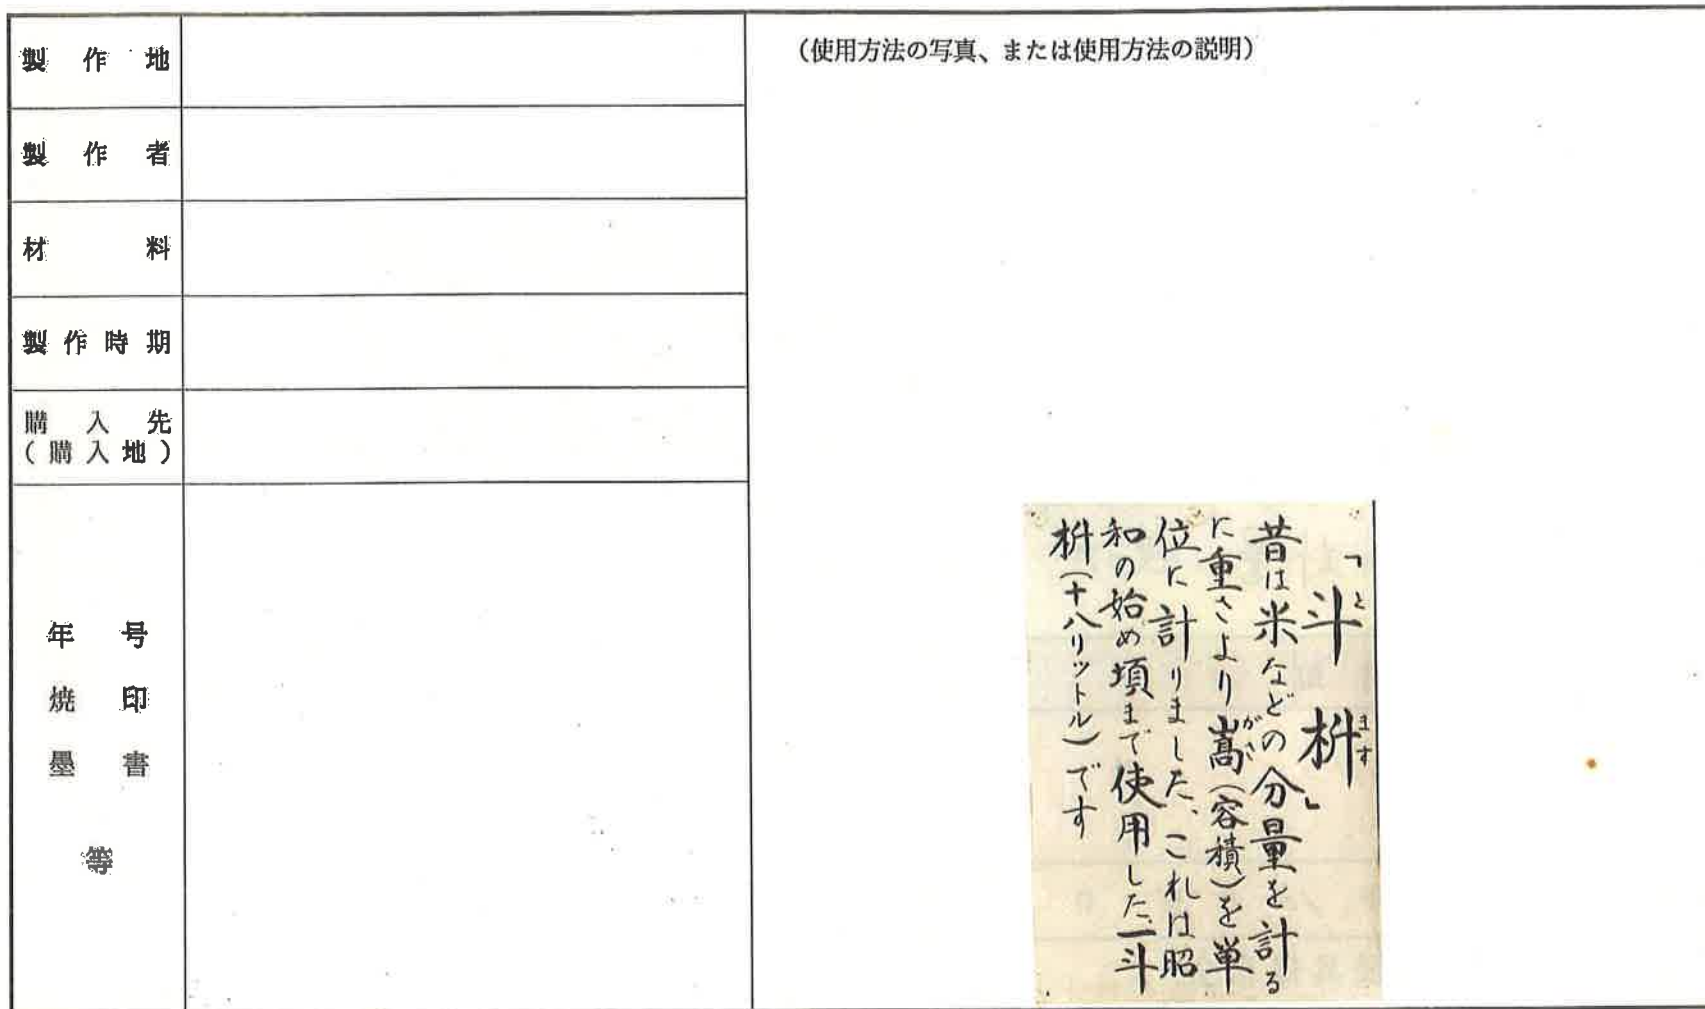 製作地
製作者
材料
製作時期
購入先
(購入地)
年号
焼印
墨書
等
(使用方法の写真、または使用方法の説明)
「斗枡」
とます
昔は米などの分量を計る
に重さより嵩(容積)を単
がさ
位に計りました、これは昭
和の始め頃まで使用した一斗
枡(十八リットル)です